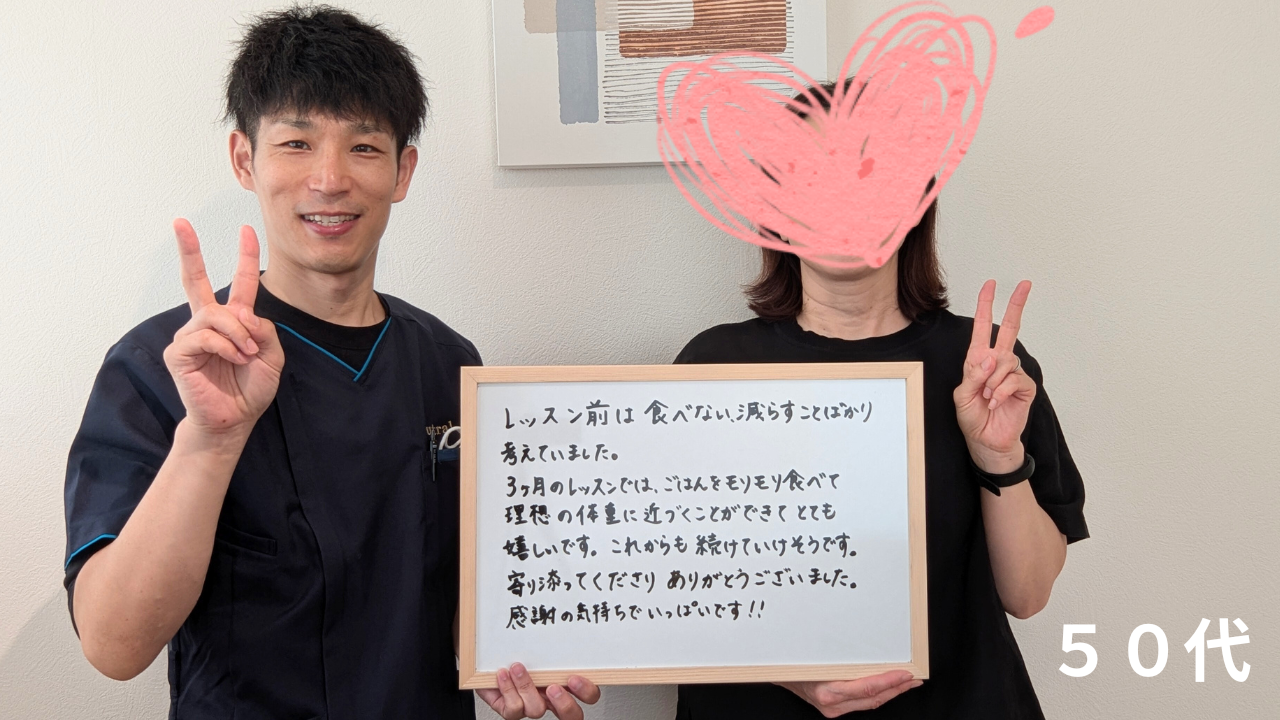 レッスン前は食べない、減らすことばかり
考えていました。
3ヶ月のレッスンでは、ごはんをモリモリ食べて
理想の体重に近づくことができてとても
嬉しいです。これからも続けていけそうです。
寄り添ってくださり ありがとうございました。
感謝の気持ちでいっぱいです!!
50代